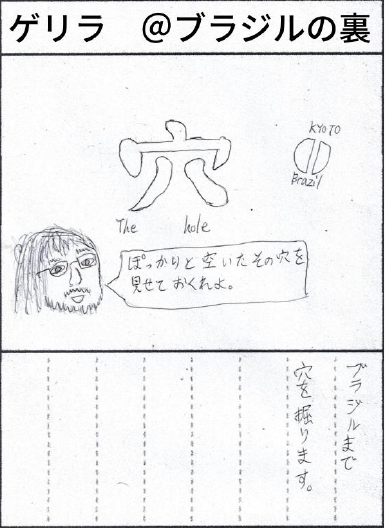 ゲリラ　@ブラジルの裏
穴
The hole
KYOTO
Brazil
ぽっかりと空いたその穴を
見せておくれよ。
ブラジルまで
穴を掘ります。